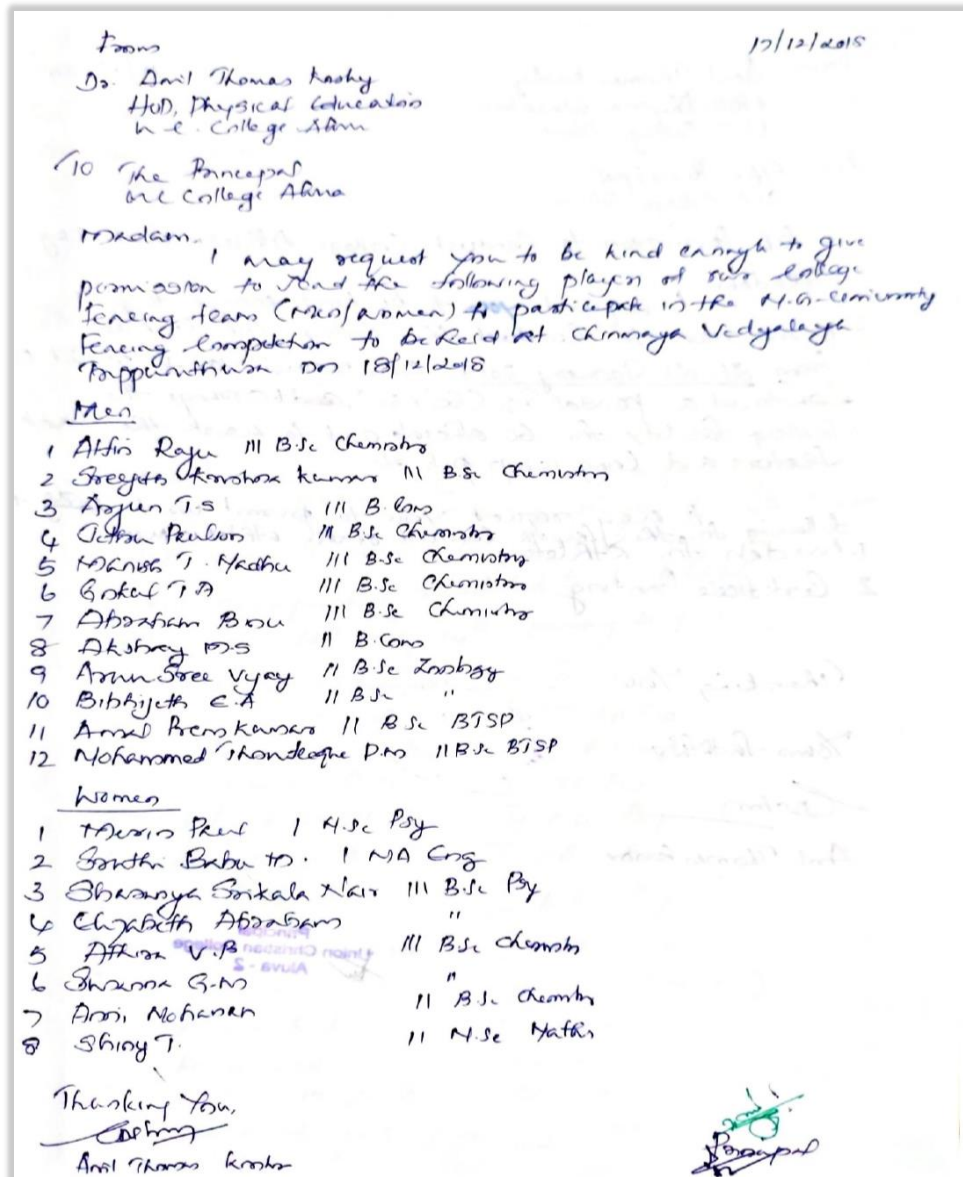 From
17/12/2018
Dr. Anil Thomas Koshy
HOD, Physical Education
U.C. College Aluva
To The Principal
U.C College Aluva
Madam.
I may request you to be kind enough to give
permission to send the following players of our college
fencing team (men/women) to participate in the M.G-University
Fencing Competition to be held at Chinmaya Vidyalaya
Trippunithura on 18/12/2018
Men
1 Raju III B.Sc Chemistry
2 Kumar III B.Sc Chemistry
3 Arjun T.S III B.Com
4 III B.Sc Chemistry
5 T. Madhu III B.Sc Chemistry
6 Gokul T A III B.Sc Chemistry
7 Abraham III B.Sc Chemistry
8 Akshay M.S II B.Com
9 Arun Sree Vijay II B.Sc Zoology
10 Bibhijeth E.A II B.Sc "
11 Premkumar II B.Sc BTSP
12 Mohammed II B.Sc BTSP
Women
1 Merin Paul I M.Sc Psy
2 Babu I MA Eng
3 Sharanya Srikala Nair III B.Sc Psy
4 Elizabeth Abraham "
5 Athira V.B III B.Sc Chemistry
6 G.M "
7 Mohanan II B.Sc Chemistry
8 Shiny T. II M.Sc Maths
Principal
Union Christian College
Aluva - 2
Thanking You,
Anil Thomas Koshy
Principal